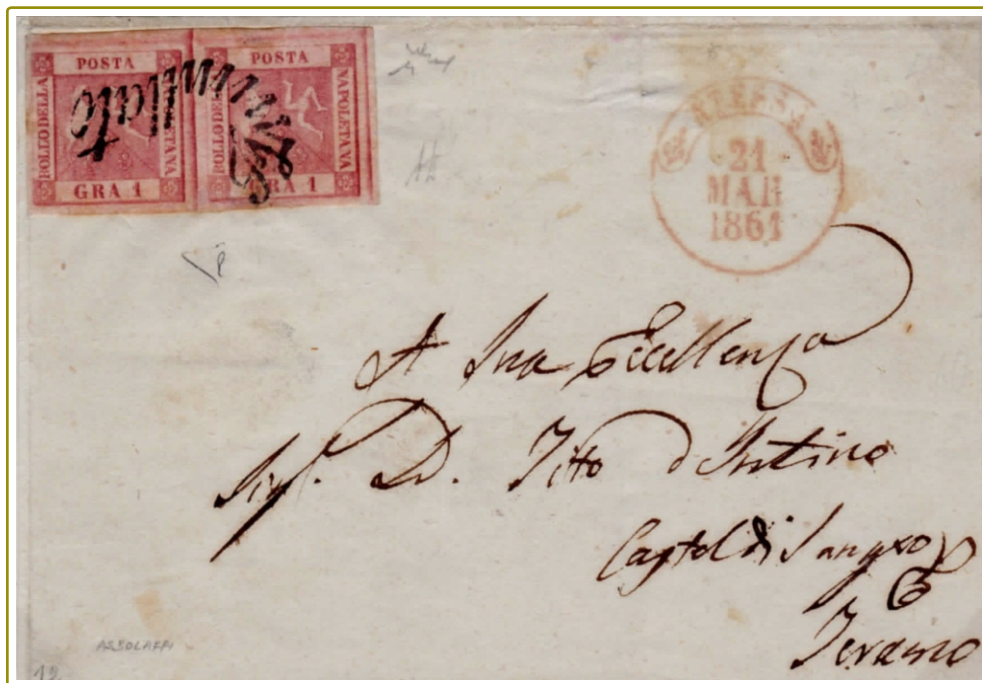 POSTA
BOLLO DELLA
NAPOLETANA
GRA 1
POSTA
BOLLO DELLA
NAPOLETANA
GRA 1
Annullato
ATESSA
21
MAR
1861
A Sua Eccellenza
Sigr. D. Tito
Castel di Sangro
Teramo
ASBOLAFFI
12